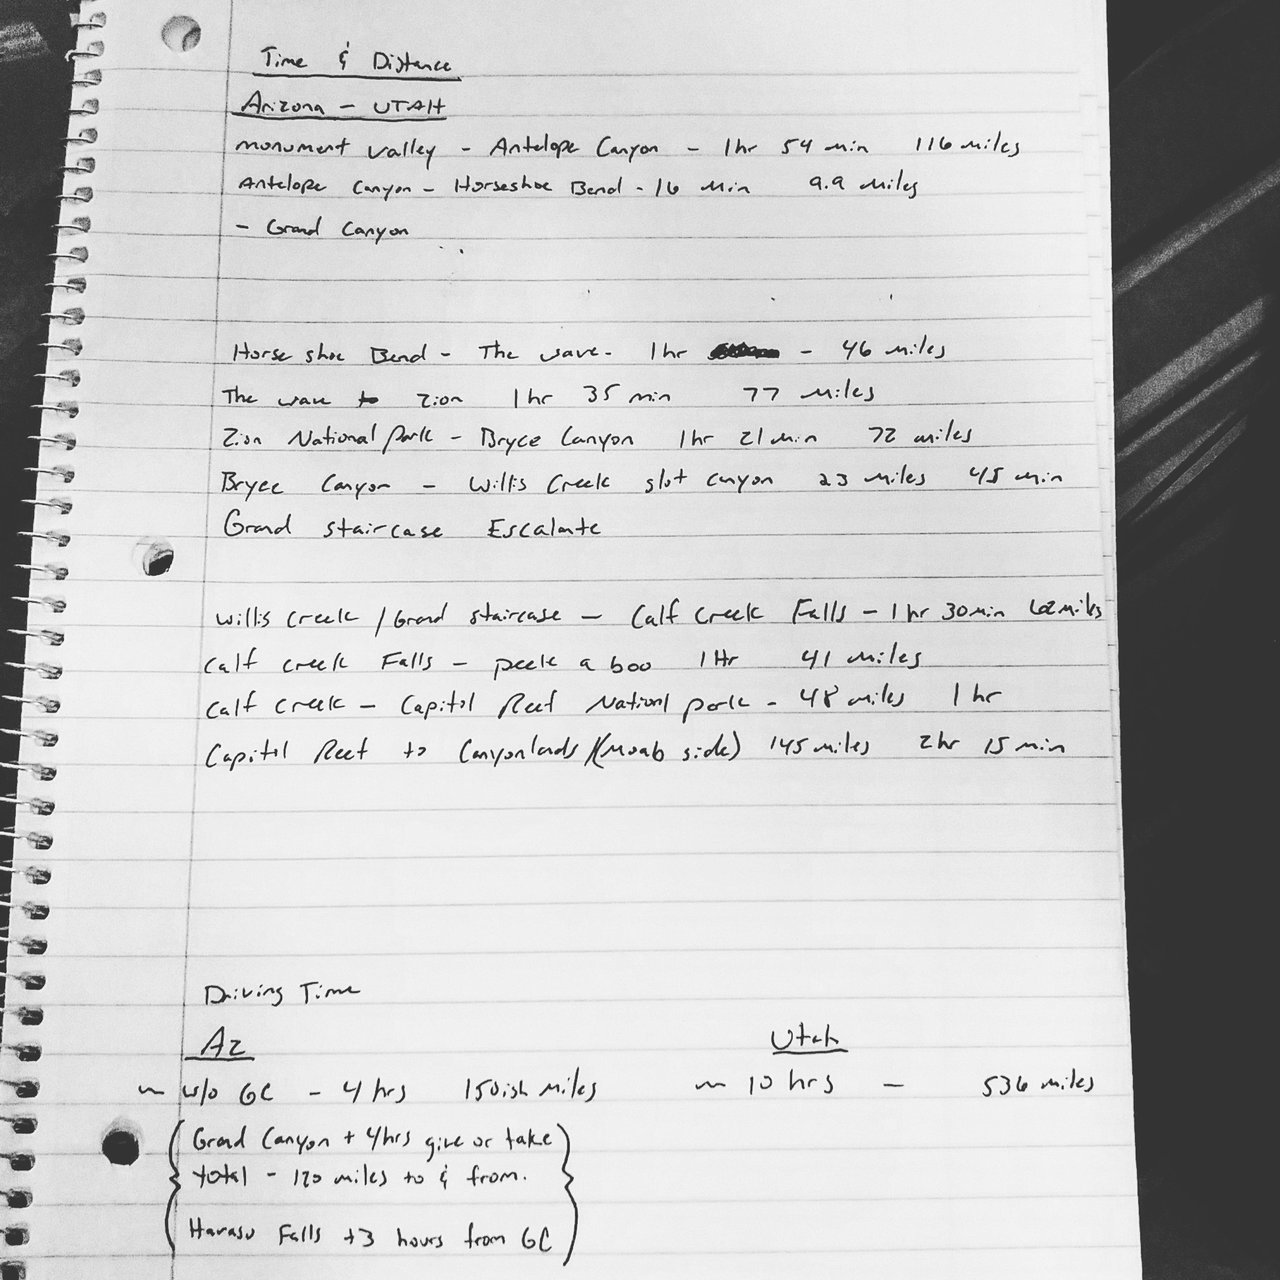 Time & Distance
Arizona - UTAH
monument valley - Antelope Canyon - 1hr 54 min 116 miles
Antelope Canyon - Horseshoe Bend - 16 Min 9.9 Miles
- Grand Canyon
Horse shoe Bend - The wave - 1hr - 46 miles
The wave to Zion 1hr 35 min 77 Miles
Zion National Park - Bryce Canyon 1hr 21 min 72 miles
Bryce Canyon - Willis Creek slot canyon 23 miles 45 min
Grand staircase Escalante
Willis Creek / Grand staircase - Calf Creek Falls - 1hr 30min 62 miles
Calf creek Falls - peek a boo 1 Hr 41 miles
Calf Creek - Capitol Reef National park - 48 miles 1 hr
Capitol Reef to Canyonlands/(Moab side) 145 miles 2hr 15 min
Driving Time
AZ Utah
~ w/o GC - 4 hrs 150ish Miles ~ 10 hrs - 536 miles
(Grand Canyon + 4hrs give or take)
total - 120 miles to & from.
Havasu Falls +3 hours from GC